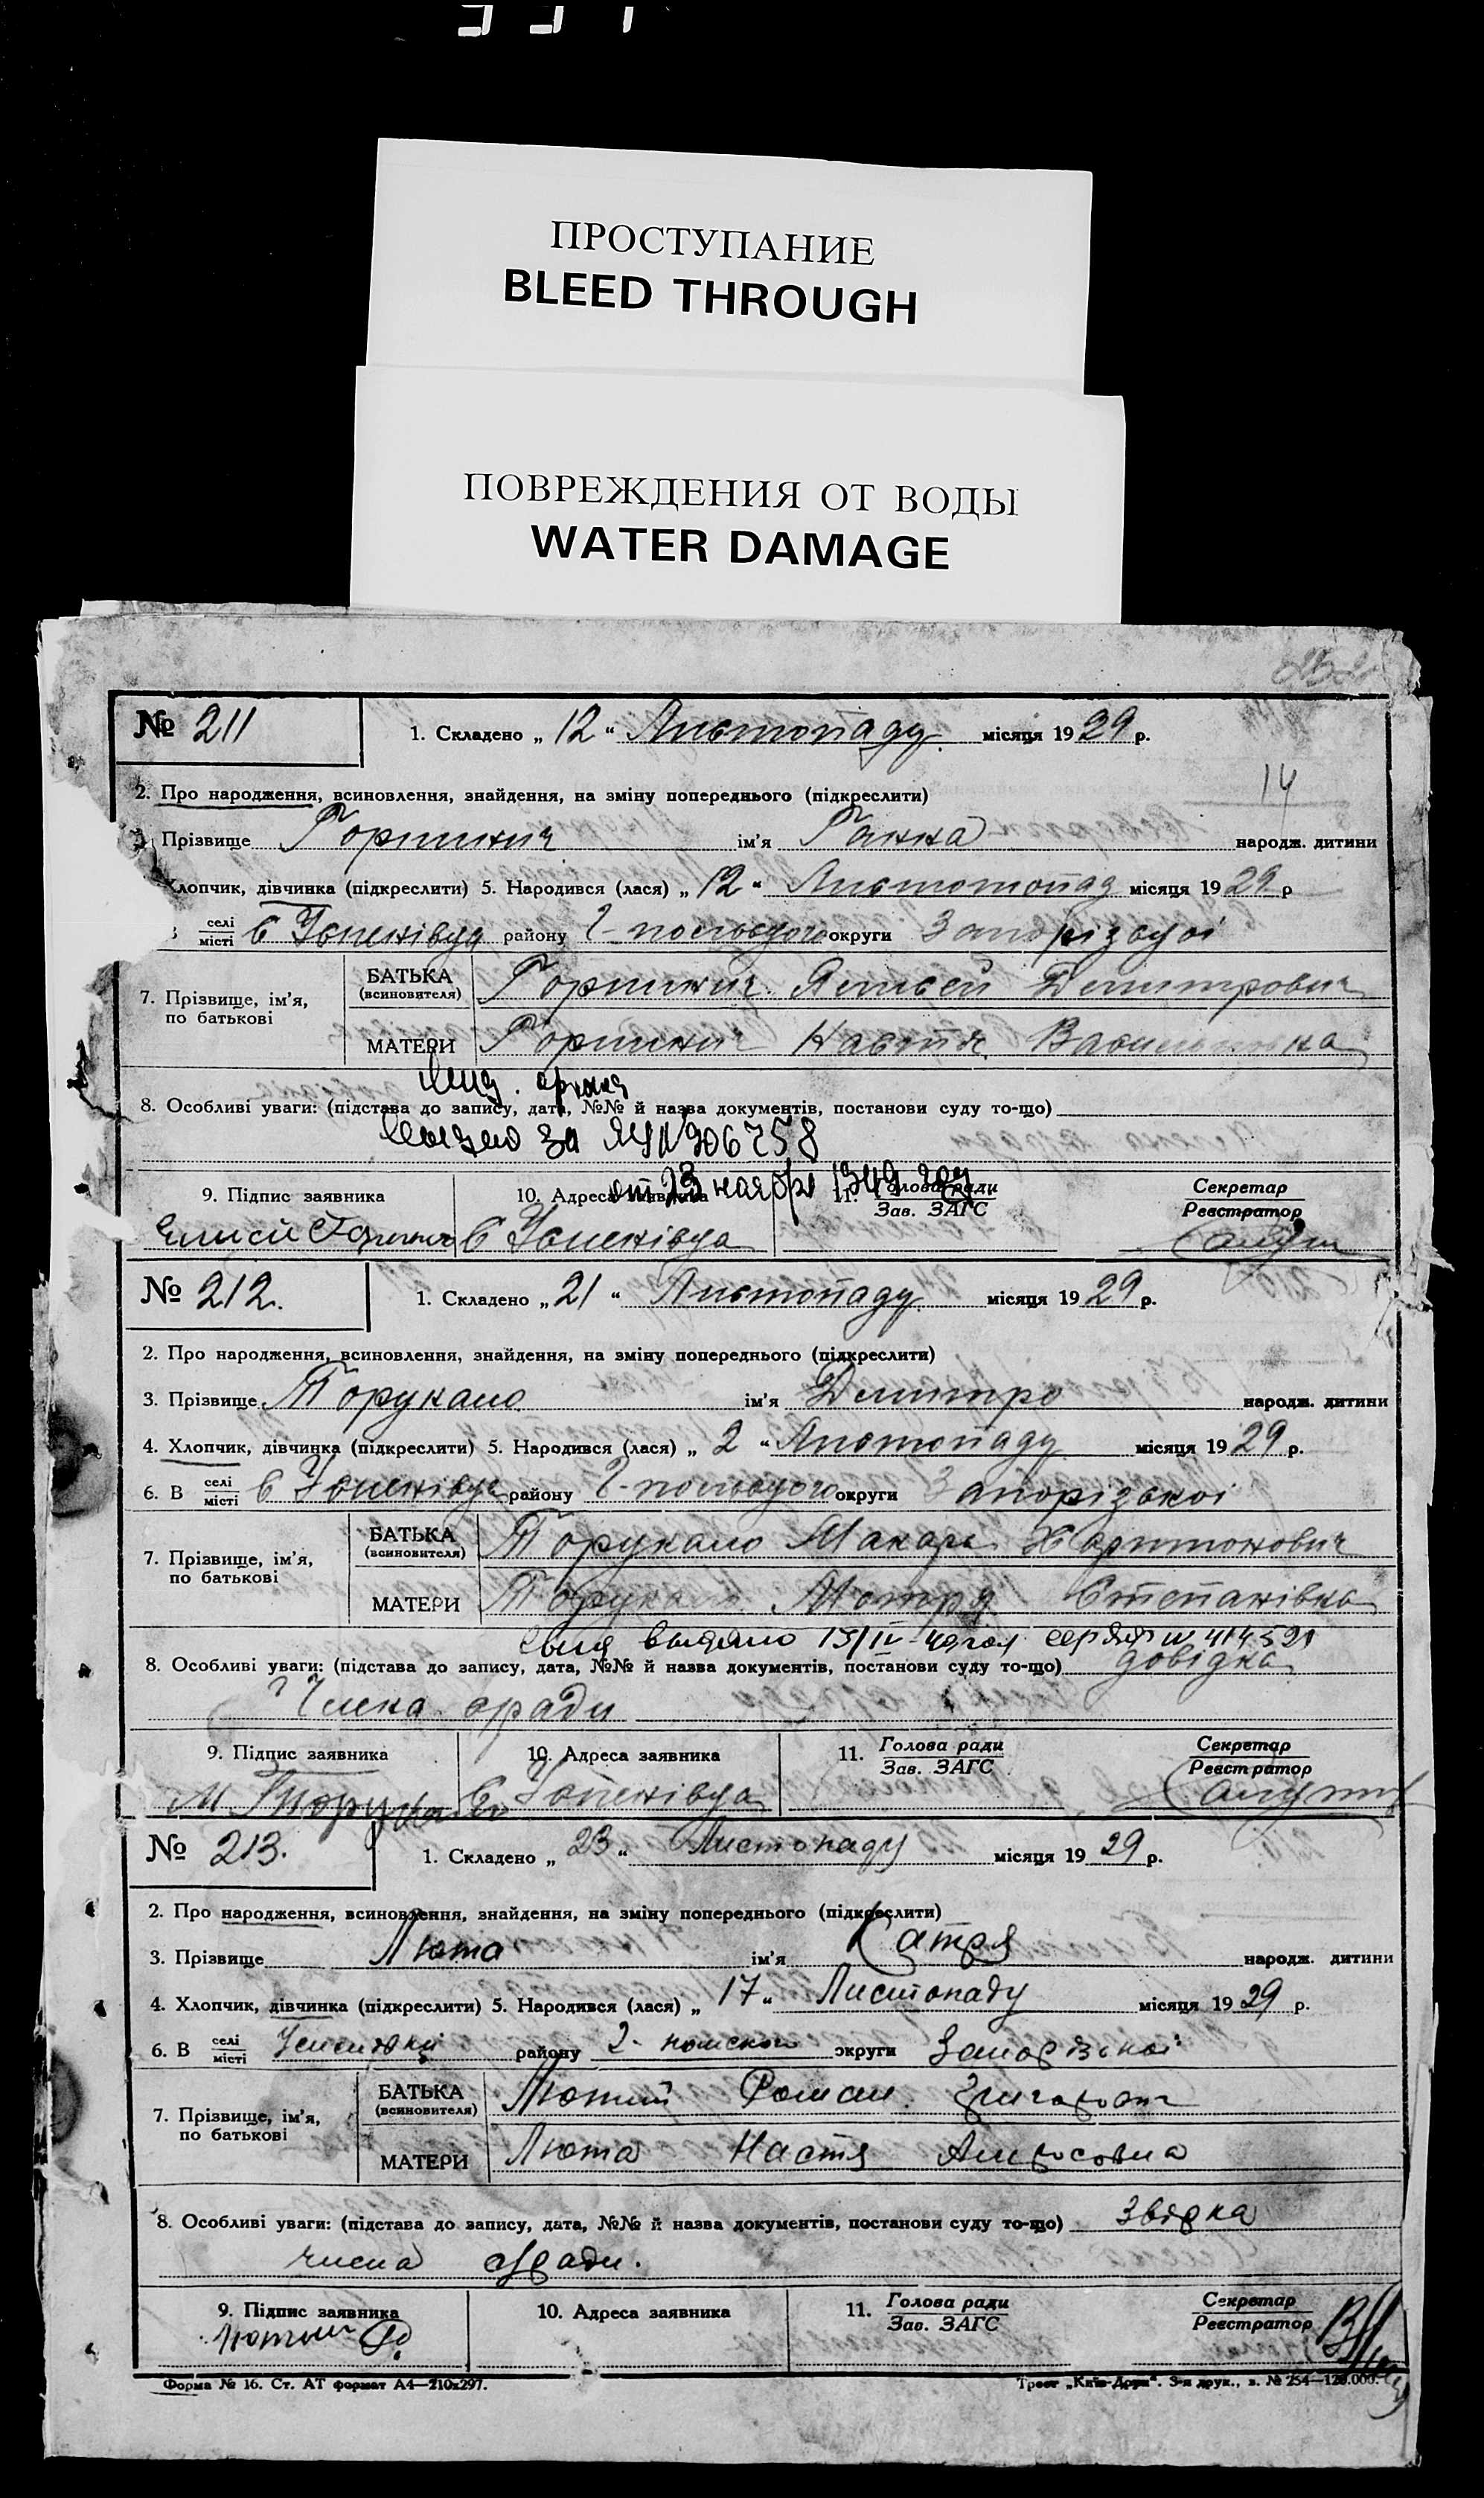 ПРОСТУПАНИЕ
BLEED THROUGH
ПОВРЕЖДЕНИЯ ОТ ВОДЫ
WATER DAMAGE
№ 211
1. Складено „ 12 “ Листопаду місяця 19 29 р.
14
2. Про народження, всиновлення, знайдення, на зміну попереднього (підкреслити)
Прізвище Горпинич ім'я Ганна народж. дитини
Хлопчик, дівчинка (підкреслити) 5. Народився (лася) „ 12 “ місяця 19 29 р
селі
місті с Успенівца району Г-польцого округи Запорізьцої
7. Прізвище, ім'я, по батькові
БАТЬКА (всиновителя) Горпинич Елисей Дмитрович
МАТЕРИ Горпинич Настя
8. Особливі уваги: (підстава до запису, дата, №№ й назва документів, постанови суду то-що)
за ЯЧ N906758
от 23 ноября 1949 год
9. Підпис заявника 10. Адреса заявника 11. Голова ради
Зав. ЗАГС
Секретар
Реєстратор
Елисей с Успенівца
№ 212.
1. Складено „ 21 “ Листопаду місяця 19 29 р.
2. Про народження, всиновлення, знайдення, на зміну попереднього (підкреслити)
3. Прізвище Торукало ім'я Дмитро народж. дитини
4. Хлопчик, дівчинка (підкреслити) 5. Народився (лася) „ 2 “ Листопаду місяця 19 29 р.
6. В селі
місті с Успенівце району Г-польцого округи Запорізької
7. Прізвище, ім'я, по батькові
БАТЬКА (всиновителя) Торукало Макарь Харитонович
МАТЕРИ Торукало Мотря Степанівна
выдано 15/IV-49 год 414521
8. Особливі уваги: (підстава до запису, дата, №№ й назва документів, постанови суду то-що) довідка
Члена с/ради
9. Підпис заявника 10. Адреса заявника 11. Голова ради
Зав. ЗАГС
Секретар
Реєстратор
М Торукало с Успенівца
№ 213.
1. Складено „ 23 “ Листопаду місяця 19 29 р.
2. Про народження, всиновлення, знайдення, на зміну попереднього (підкреслити)
3. Прізвище Люта ім'я Катря народж. дитини
4. Хлопчик, дівчинка (підкреслити) 5. Народився (лася) „ 17 “ Листопаду місяця 19 29 р.
6. В селі
місті Успенівці району округи Запорізької
7. Прізвище, ім'я, по батькові
БАТЬКА (всиновителя) Лютий Роман Григорович
МАТЕРИ Люта Настя Амросовна
8. Особливі уваги: (підстава до запису, дата, №№ й назва документів, постанови суду то-що) Звідка
члена с/ради.
9. Підпис заявника 10. Адреса заявника 11. Голова ради
Зав. ЗАГС
Секретар
Реєстратор
Лютый Р
Форма № 16. Ст. АТ формат А4—210x297.
Трест „Київ-Друк“. 3-я друк., з. № 254—120.000.